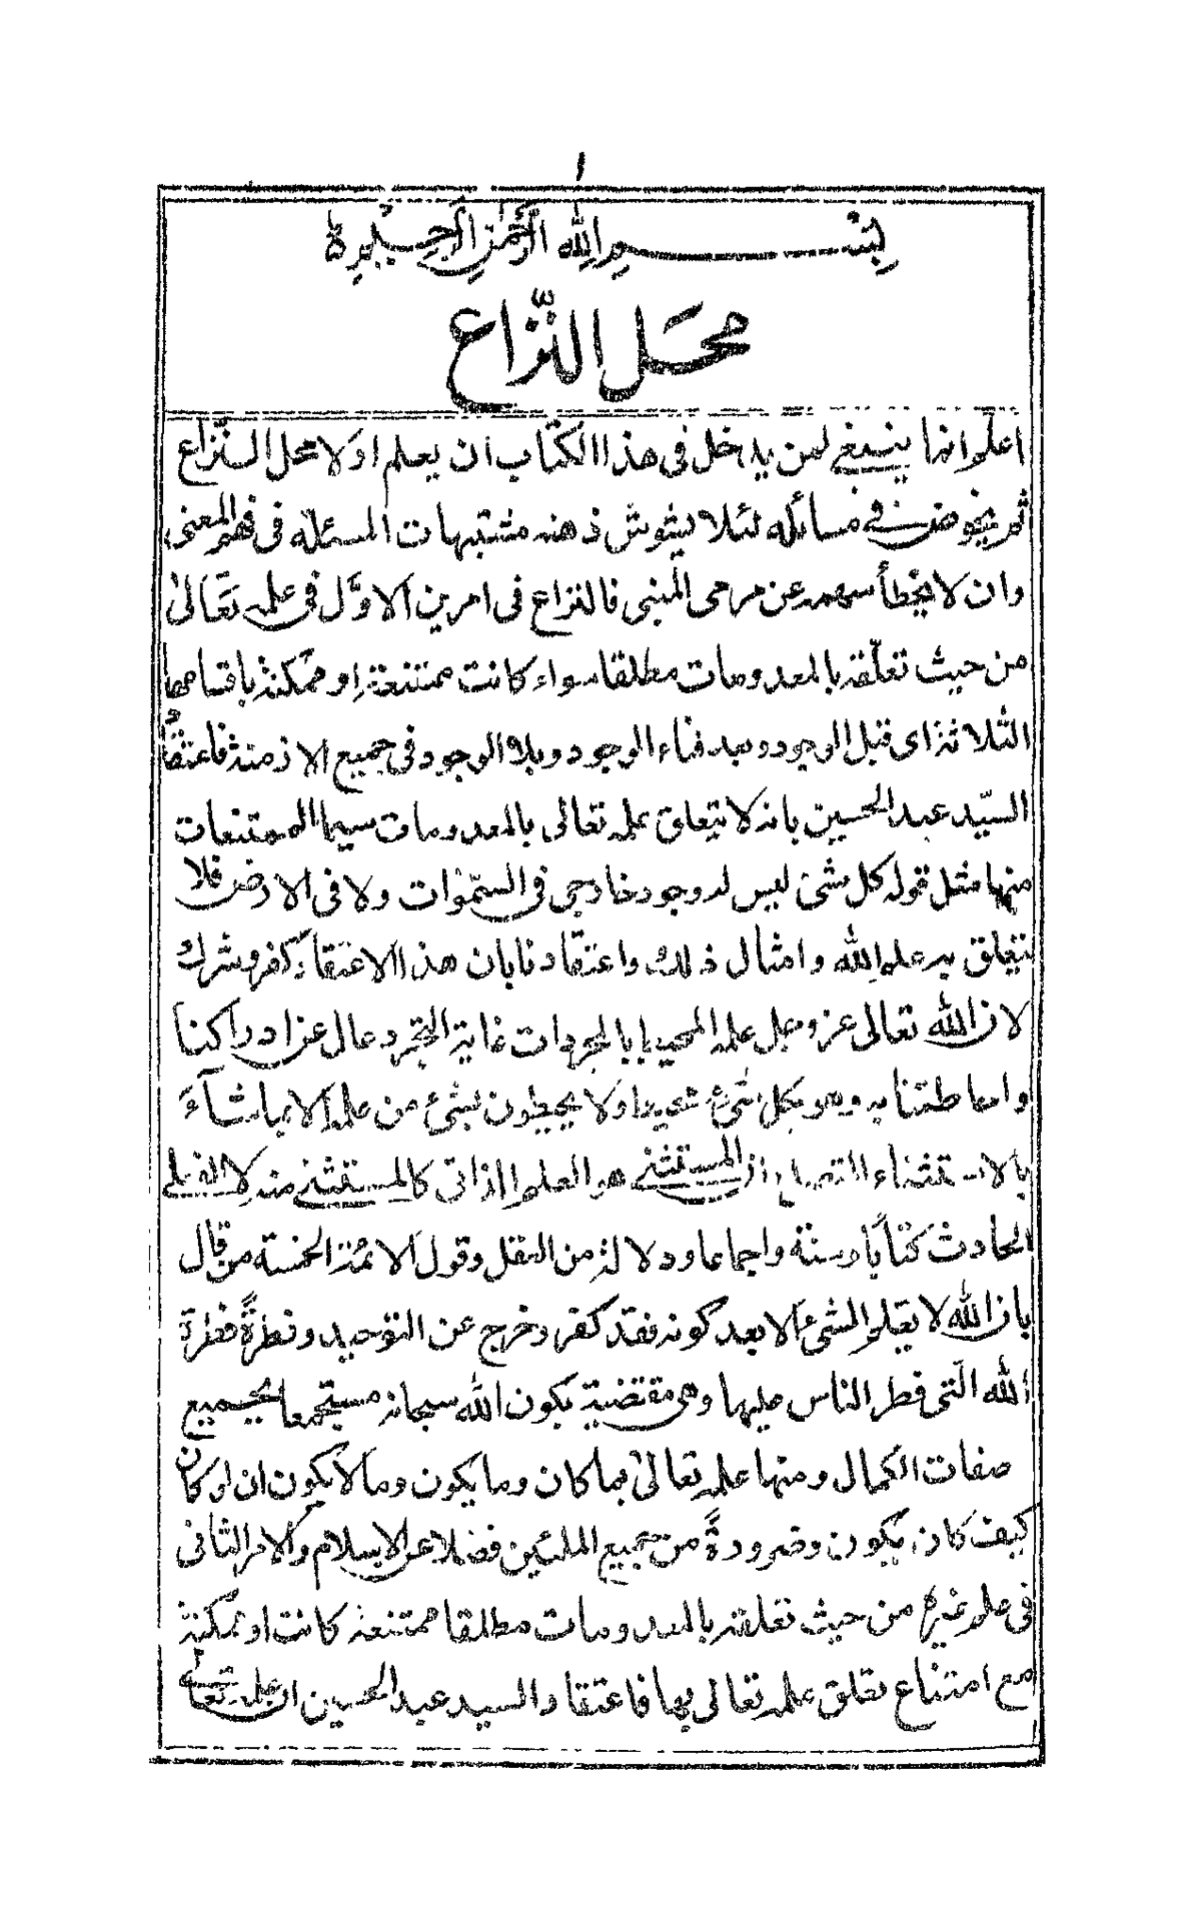 ١
بسم الله الرحمن الرحيم
محل النزاع
اعلم انما ينبغي لمن يدخل فى هذا الكتاب ان يعلم اولا محل النزاع
ثم يخوض فى مسائله لئلا يشوش ذهنه مشتبهات المسئلة فى فهم المعنى
وان لا يخطأ سهمه عن مرمى المبنى فالنزاع فى امرين الاوّل فى علمه تعالىٰ
من حيث تعلّقه بالمعدومات مطلقا سواء كانت ممتنعة او ممكنة باقسامها
الثلاثة اى قبل الوجود وبعد فناء الوجود وبلا الوجود فى جميع الازمنة فاعتقاد
السيّد عبد الحسين بانه لا يتعلق علمه تعالى بالمعدومات سيما الممتنعات
منها مثل قوله كل شئ ليس له وجود خارجى فى السمٰوات ولا فى الارض فلا
يتعلق به علم الله وامثال ذلك واعتقادنا بان هذا الاعتقاد كفر وشرك
لان الله تعالى عز وجل علمه المحيط بالمجردات غاية التجرد عال عن ادراكنا
واحاطتنا به وهو بكل شئ محيط ولا يحيطون بشئ من علمه الا بما شآء
بالاستثناء المستثنى هو العلم الذاتى كالمستثنى منه لا الفعلى
الحادث كتاباً وسنة واجماعا ودلالة من العقل وقول الائمة الخمسة من قال
بان الله لا يعلم الشئ الا بعد كونه فقد كفر وخرج عن التوحيد وفطرةً فطرة
الله الّتى فطر الناس عليها وهى مقتضية بكون الله سبحانه مستجمعا لجميع
صفات الكمال ومنها علمه تعالىٰ بما كان وما يكون وما لا يكون ان لو كان
كيف كان يكون وضرورةً من جميع المليّين فضلا عن الاسلام والامر الثانى
فى علم غيره من حيث تعلقه بالمعدومات مطلقا ممتنعة كانت او ممكنة
مع امتناع تعلق علمه تعالى بها فاعتقاد السيد عبد الحسين ان علمه تعالى